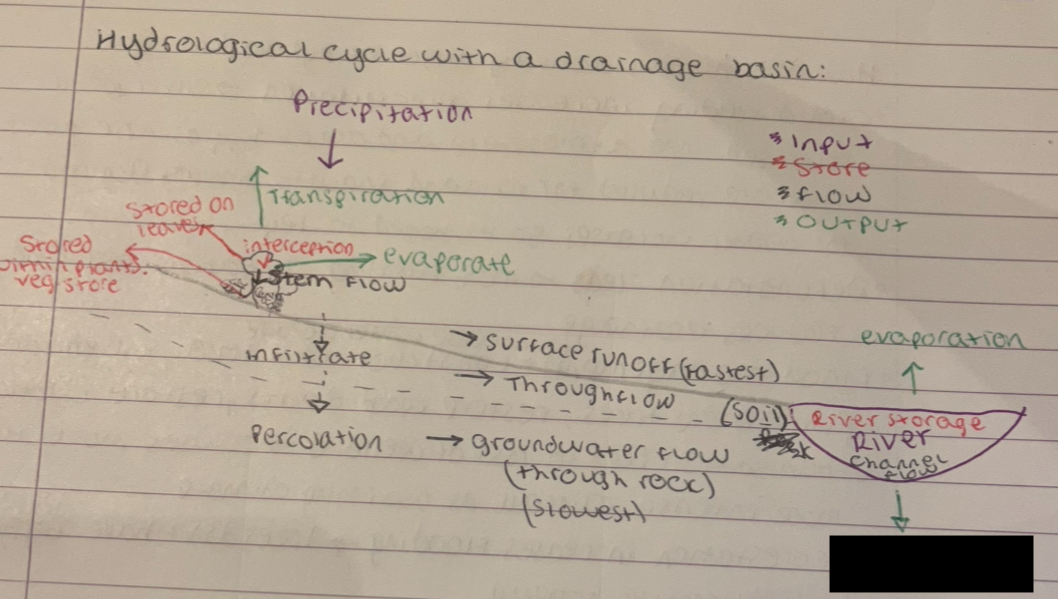 Hydrological cycle with a drainage basin:
Precipitation
* Input
* Store
* Flow
* Output
Transpiration
stored on
leaves
interception
evaporate
Stored
plants.
veg store
Stem flow
infiltrate
→ surface runoff (fastest)
→ Throughflow
(soil)
evaporation
River storage
River
channel
flow
Percolation
→ groundwater flow
(through rock)
(slowest)